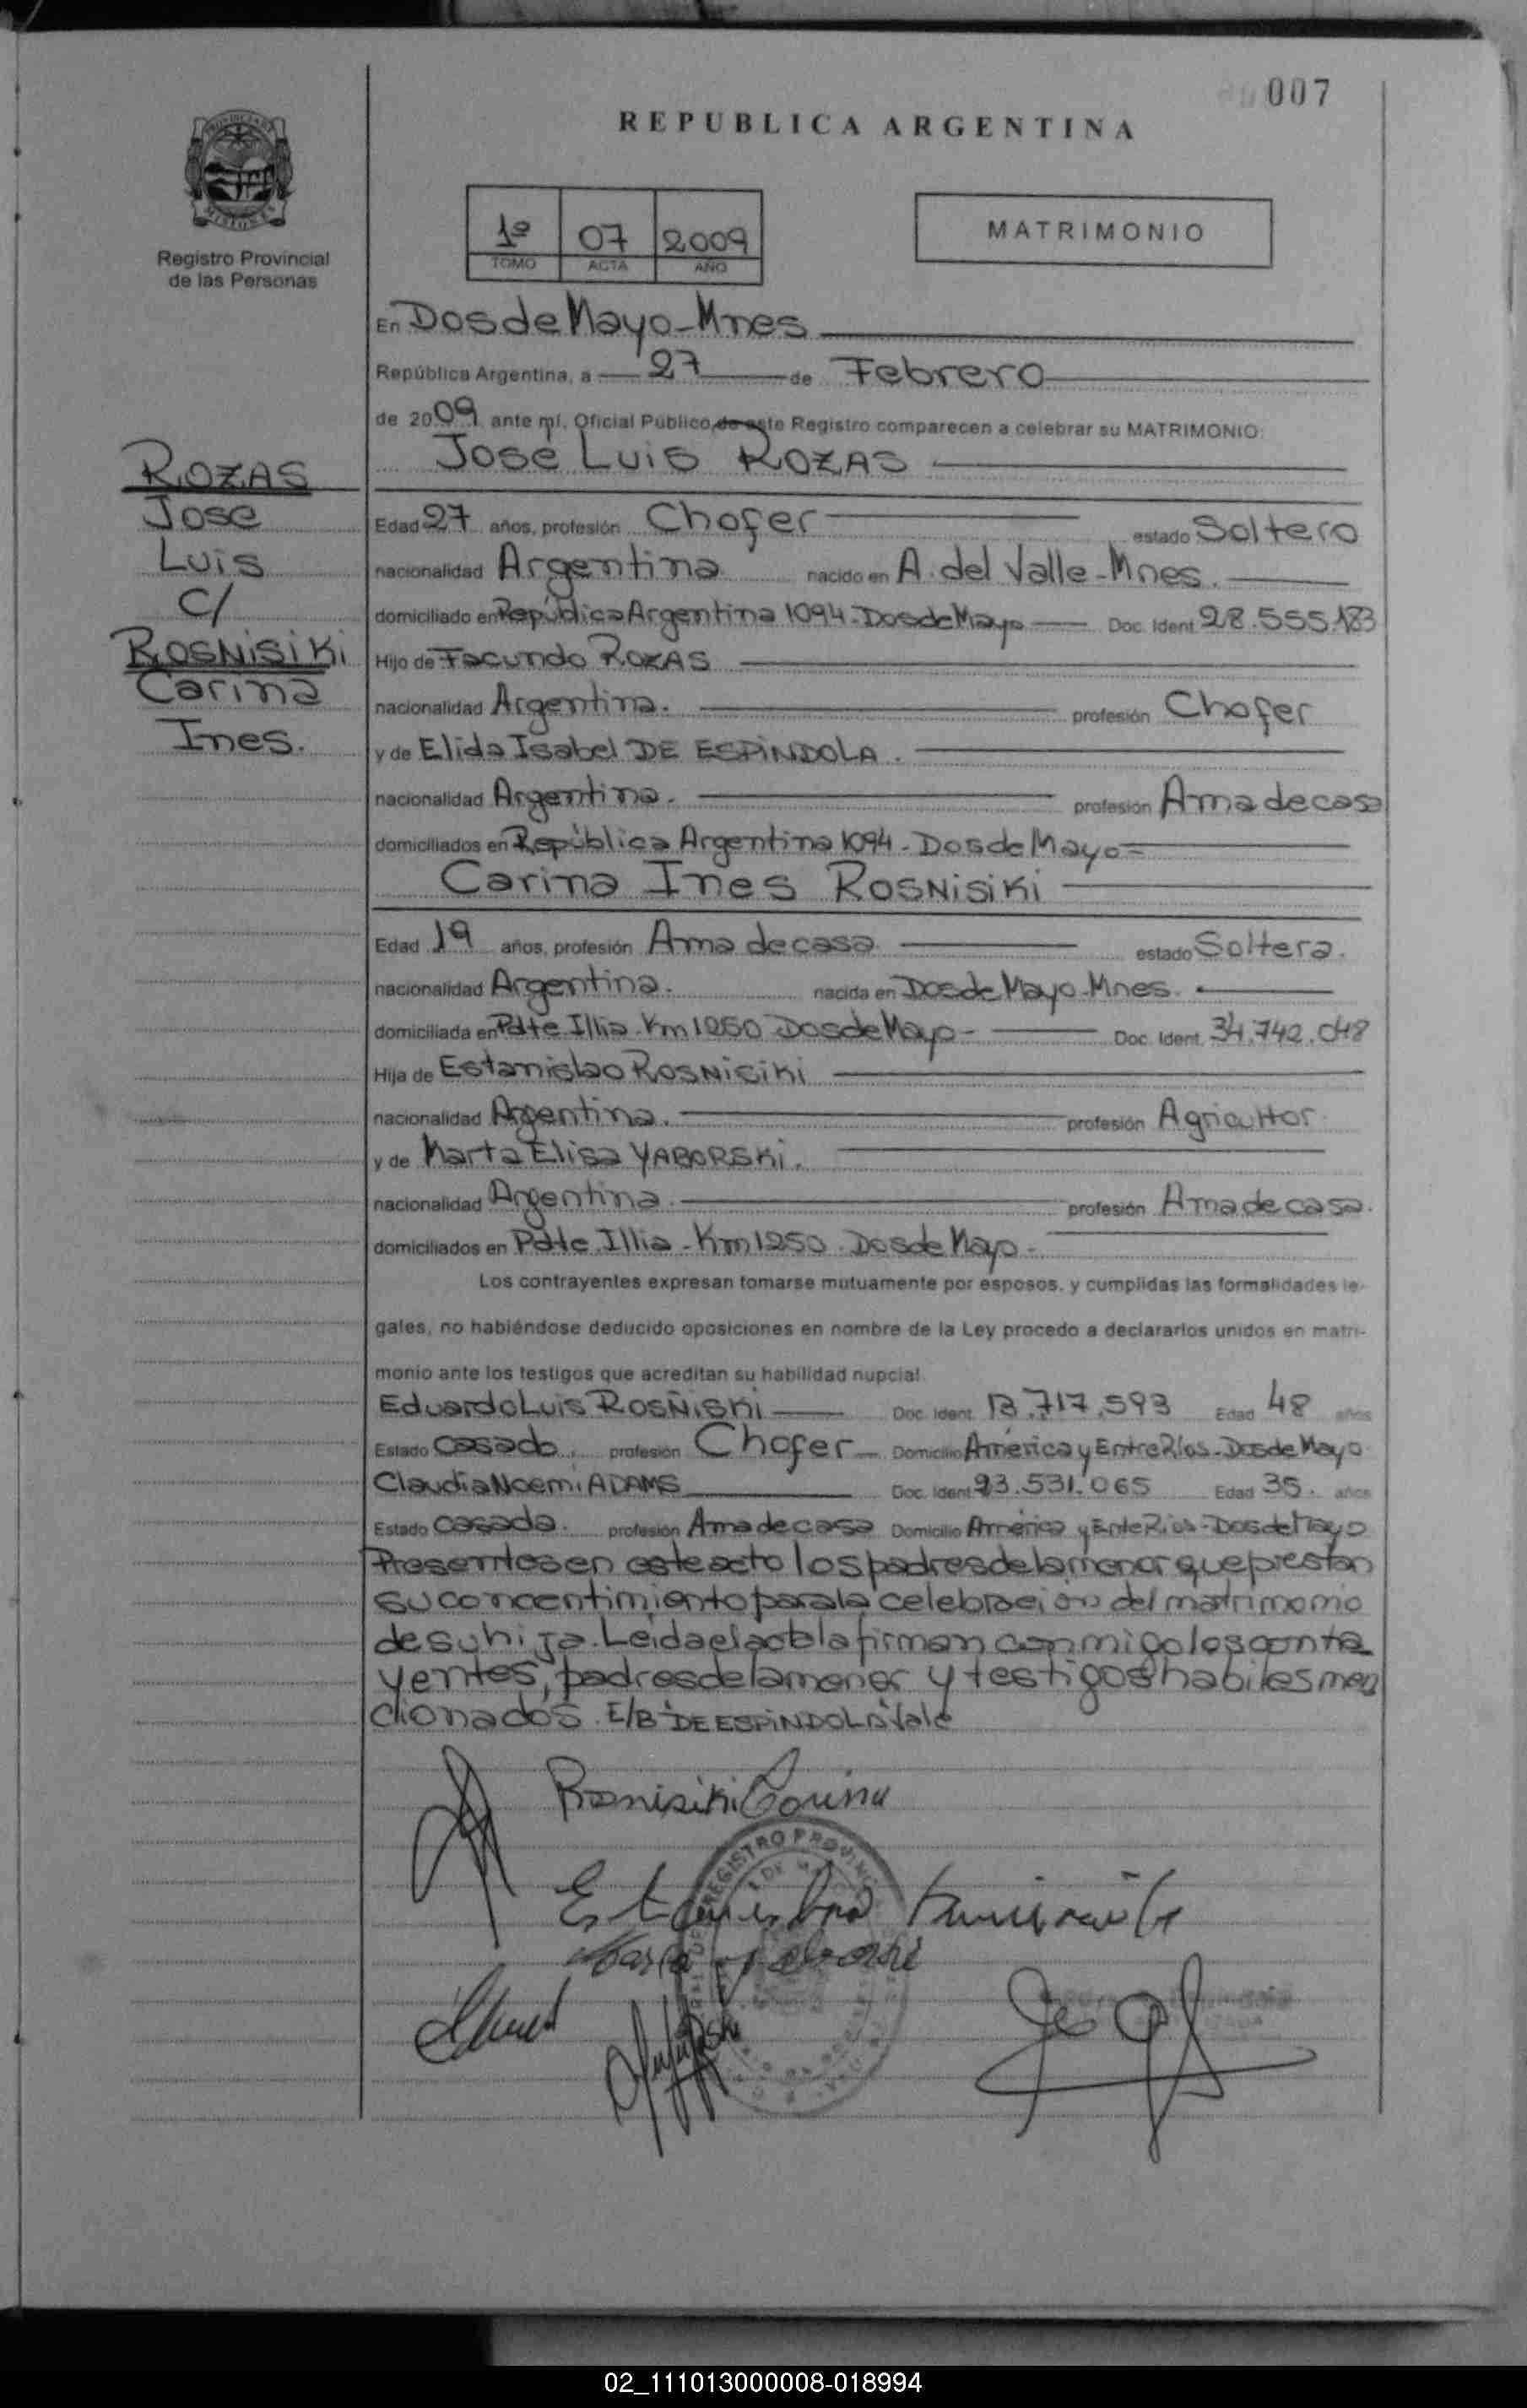 007
REPUBLICA ARGENTINA
MATRIMONIO
1º 07 2009
TOMO ACTA AÑO
Registro Provincial
de las Personas
En Dos de Mayo-Mnes
República Argentina, a 27 de Febrero
de 2009 ante mí, Oficial Público, de este Registro comparecen a celebrar su MATRIMONIO:
Jose Luis ROZAS
ROZAS
Jose
Luis
C/
ROSNISIKI
Carina
Ines.
Edad 27 años, profesión Chofer estado Soltero
nacionalidad Argentina nacido en A. del Valle-Mnes.
domiciliado en República Argentina 1094-Dos de Mayo Doc. Ident. 28.555.183
Hijo de Facundo ROZAS
nacionalidad Argentina. profesión Chofer
y de Elida Isabel DE ESPINDOLA.
nacionalidad Argentina. profesión Ama de casa
domiciliados en República Argentina 1094-Dos de Mayo-
Carina Ines ROSNISIKI
Edad 19 años, profesión Ama de casa estado Soltera.
nacionalidad Argentina. nacida en Dos de Mayo-Mnes.
domiciliada en Pdte Illia-Km 1250 Dos de Mayo- Doc. Ident. 34.742.048
Hija de Estanislao ROSNISIKI
nacionalidad Argentina. profesión Agricultor
y de Marta Elisa YABORSKI.
nacionalidad Argentina profesión Ama de casa.
domiciliados en Pdte Illia-Km 1250 Dos de Mayo-
Los contrayentes expresan tomarse mutuamente por esposos, y cumplidas las formalidades le-
gales, no habiéndose deducido oposiciones en nombre de la Ley procedo a declararlos unidos en matri-
monio ante los testigos que acreditan su habilidad nupcial.
Eduardo Luis ROSÑISKI Doc. Ident. 13.717.593 Edad 48 años
Estado Casado. profesión Chofer Domicilio América y Entre Ríos-Dos de Mayo
Claudia Noemi ADAMS Doc. Ident. 93.531.065 Edad 35. años
Estado Casada. profesión Ama de casa Domicilio América y Ente Ríos-Dos de Mayo
Presentes en este acto los padres de la menor que prestan
su concentimiento para la celebración del matrimonio
de su hija. Leida el acta la firman conmigo los contra
yentes, padres de la menor y testigos habiles men
cionados. E/B "DE ESPINDOLA" Vale
Rosnisiki Carina
REGISTRO PROVINCIAL
02_111013000008-018994